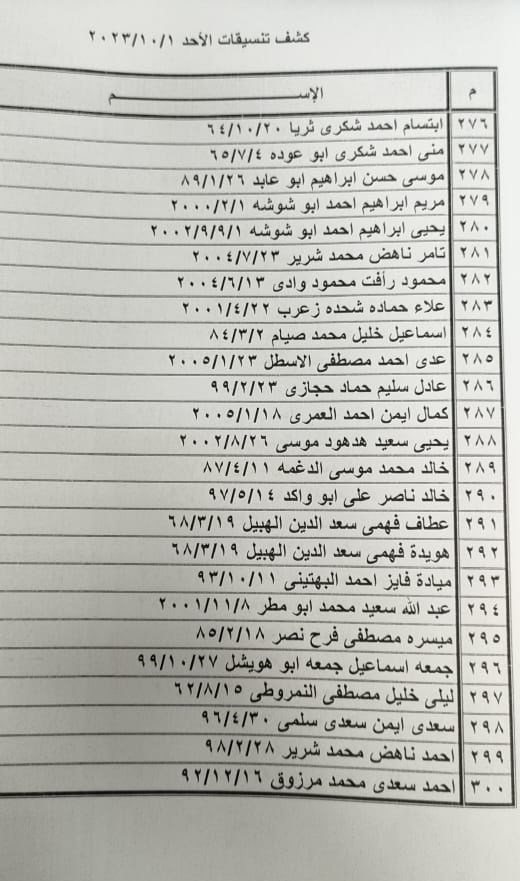 كشف تنسيقات الأحد ٢٠٢٣/١٠/١
م الإســـــــم
٢٧٦ ابتسام احمد شكرى ثريا ٦٤/١٠/٢٠
٢٧٧ منى احمد شكرى ابو عوده ٦٥/٧/٤
٢٧٨ موسى حسن ابراهيم ابو عابد ٨٩/١/٢٦
٢٧٩ مريم ابراهيم احمد ابو شوشه ٢٠٠٠/٢/١
٢٨٠ يحيى ابراهيم احمد ابو شوشه ٢٠٠٢/٩/٩/١
٢٨١ تامر ناهض محمد شرير ٢٠٠٤/٧/٢٣
٢٨٢ محمود رأفت محمود وادى ٢٠٠٤/٦/١٣
٢٨٣ علاء حماده شحده زعرب ٢٠٠١/٤/٢٢
٢٨٤ اسماعيل خليل محمد صيام ٨٤/٣/٢
٢٨٥ عدى احمد مصطفى الاسطل ٢٠٠٥/١/٢٣
٢٨٦ عادل سليم حماد حجازى ٩٩/٢/٢٣
٢٨٧ كمال ايمن احمد العمرى ٢٠٠٥/١/١٨
٢٨٨ يحيى سعيد هدهود موسى ٢٠٠٢/٨/٢٦
٢٨٩ خالد محمد موسى الدغمه ٨٧/٤/١١
٢٩٠ خالد ناصر على ابو واكد ٩٧/٥/١٤
٢٩١ عطاف فهمى سعد الدين الهبيل ٦٨/٣/١٩
٢٩٢ هويدة فهمى سعد الدين الهبيل ٦٨/٣/١٩
٢٩٣ ميادة فايز احمد البهتينى ٩٣/١٠/١١
٢٩٤ عبد الله سعيد محمد ابو مطر ٢٠٠١/١١/٨
٢٩٥ ميسره مصطفى فرح نصر ٨٥/٢/١٨
٢٩٦ جمعه اسماعيل جمعه ابو هويشل ٩٩/١٠/٢٧
٢٩٧ ليلى خليل مصطفى النمروطى ٦٢/٨/١٥
٢٩٨ سعدى ايمن سعدى سلمى ٩٦/٤/٣٠
٢٩٩ احمد ناهض محمد شرير ٩٨/٢/٢٨
٣٠٠ احمد سعدى محمد مرزوق ٩٢/١٢/١٦